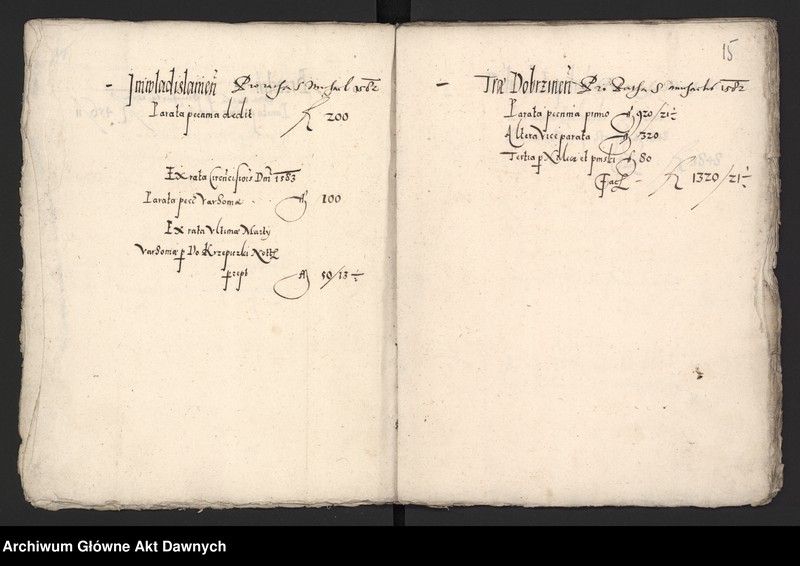 Juniwladislauien̄ Pro ratha S Michael 1582
Parata pecunia dedit fl 200
Ex rata Circūcisiōis Dn̄i 1583
Parata pecū Varsouiæ fl 100
Ex rata Vltimæ Marty
Varsouiæ p Do Krzepiczki Nottl
p rept fl 50/13 ½
15
Træ Dobrzinen̄ Pro Ratha S michaelis 1582
Parata pecunia primo fl 920/21 ½
Altera vice parata fl 320
Tertia p et fl 80
Facit fl 1320/21 ½
Archiwum Główne Akt Dawnych